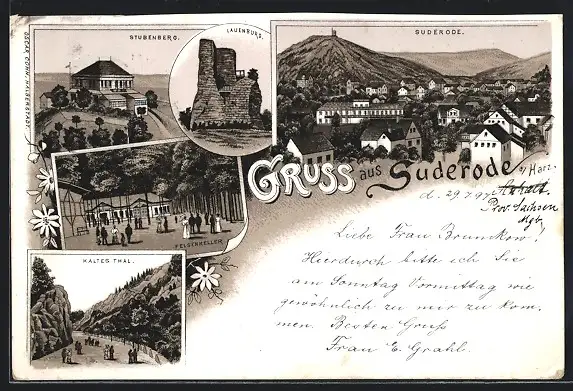 STUBENBERG.
LAUENBURG.
SUDERODE.
OSCAR COHN, HALBERSTADT.
GRUSS aus Suderode a/Harz.
d. 29.7.97
Prov. Sachsen
Mgb.
FELSENKELLER
KALTES THAL.
Liebe Frau Brumkow!
Hierdurch bitte ich Sie
am Sonntag Vormittag wie
gewöhnlich zu mir zu kom-
men. Besten Gruß
Frau E. Grahl.